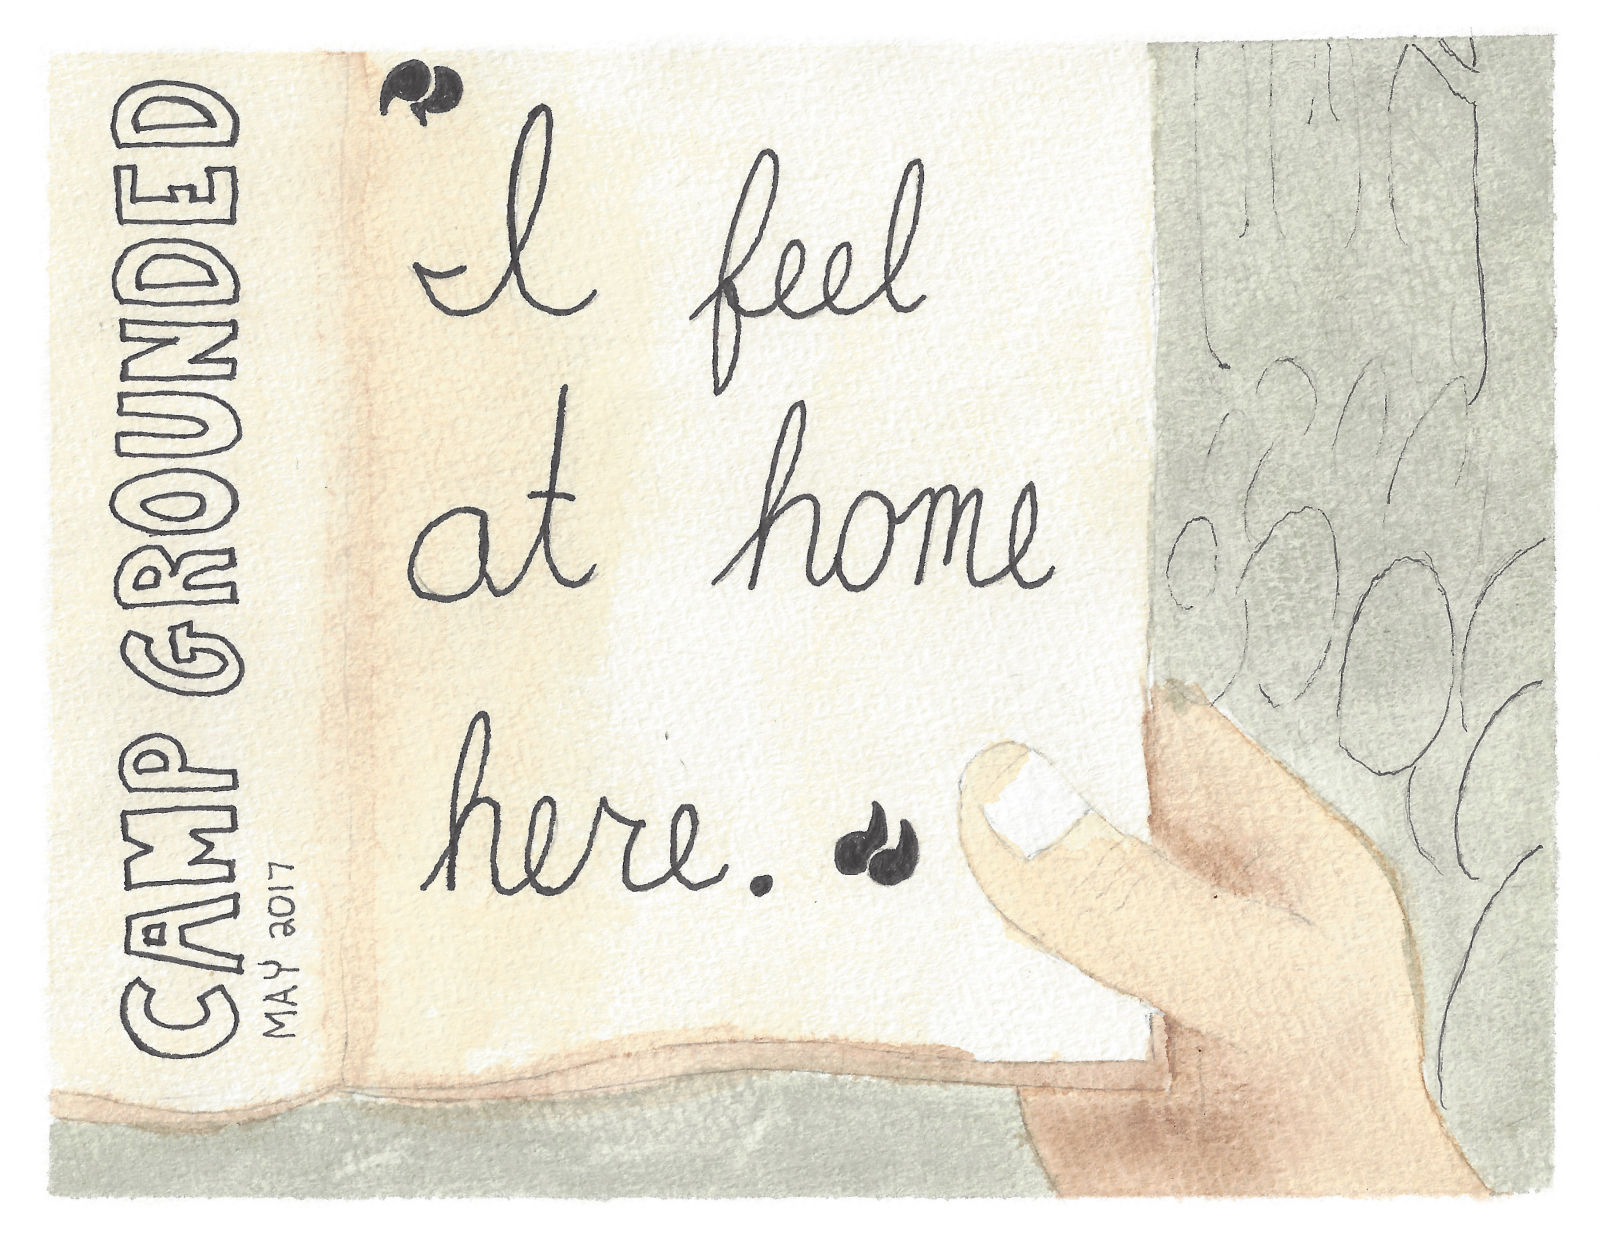 CAMP GROUNDED
MAY 2017
"I feel
at home
here."